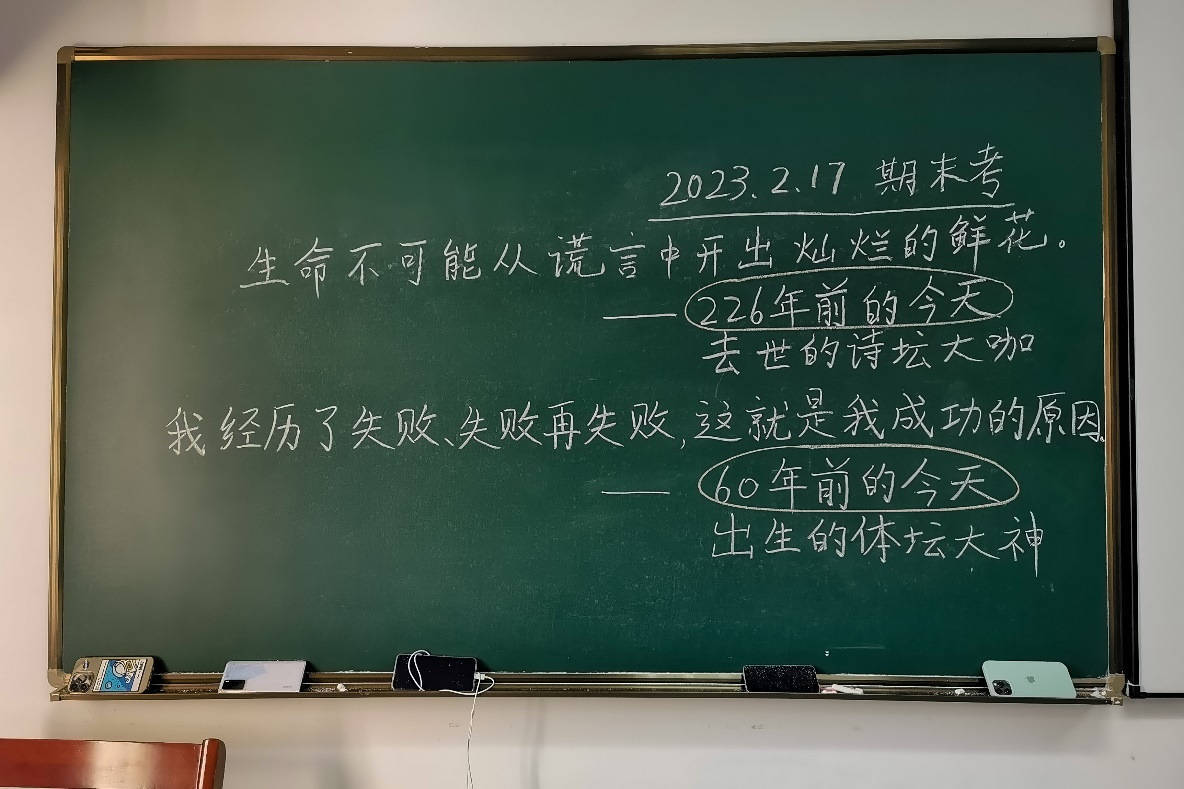 2023.2.17 期末考
生命不可能从谎言中开出灿烂的鲜花。
——226年前的今天
去世的诗坛大咖
我经历了失败、失败再失败,这就是我成功的原因。
——60年前的今天
出生的体坛大神